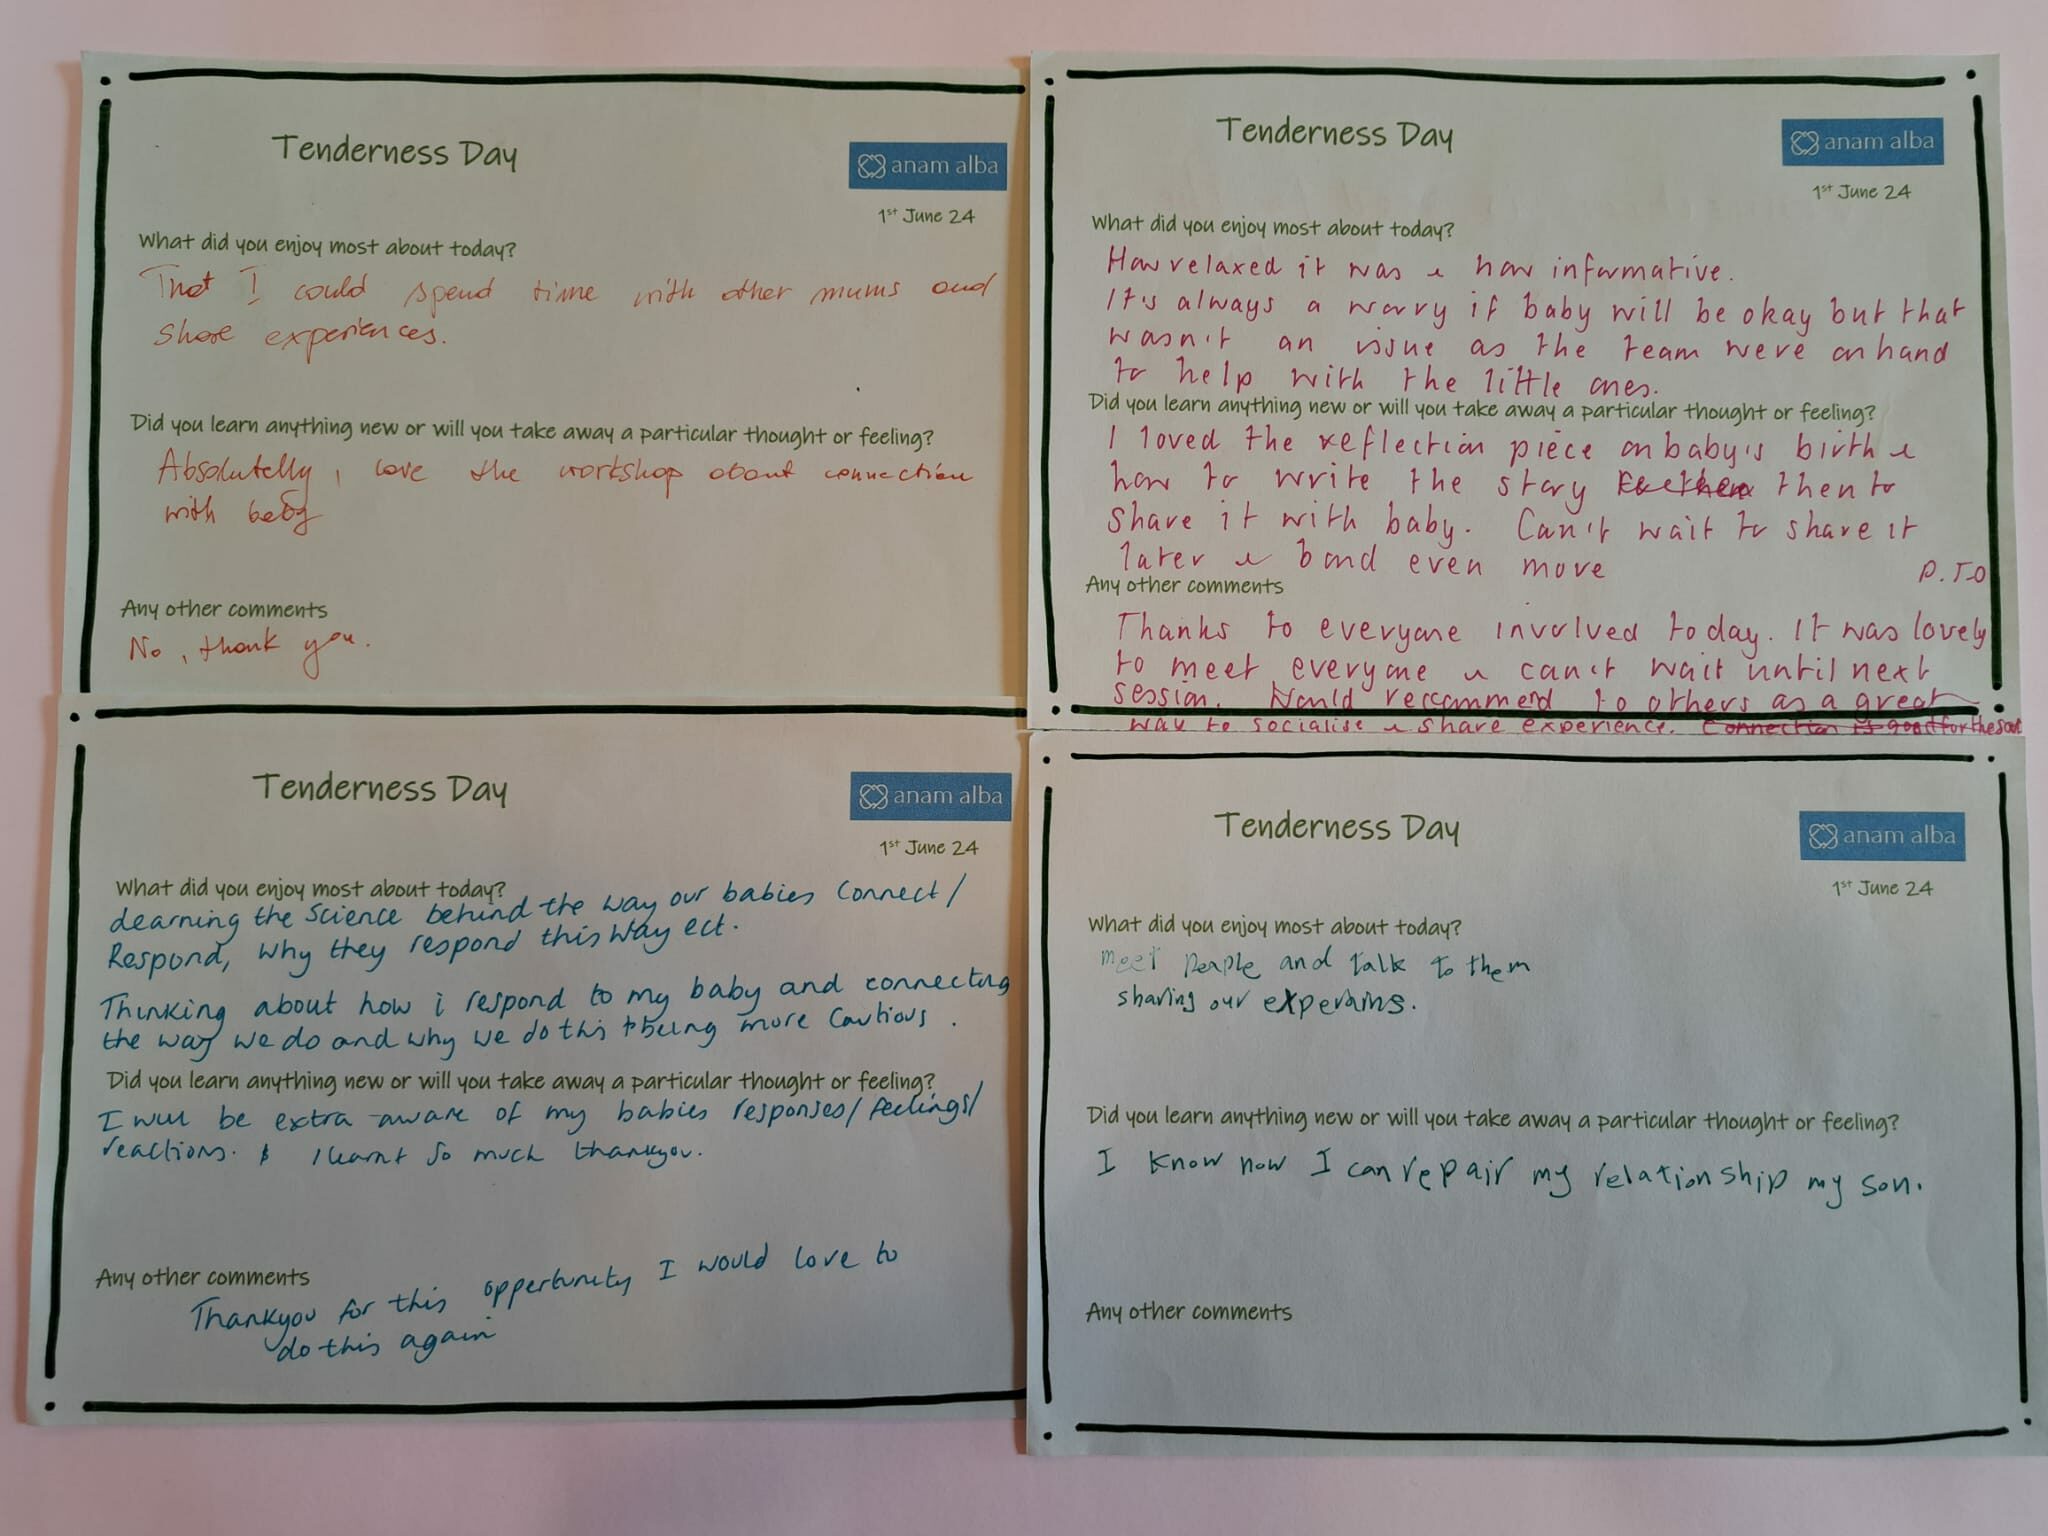 Tenderness Day
anam alba
1st June 24
What did you enjoy most about today?
That I could spend time with other mums and
share experiences.
Did you learn anything new or will you take away a particular thought or feeling?
Absolutelly, love the workshop about connection
with baby
Any other comments
No, thank you.
Tenderness Day
anam alba
1st June 24
What did you enjoy most about today?
How relaxed it was & how informative.
It's always a worry if baby will be okay but that
wasn't an issue as the team were on hand
to help with the little ones.
Did you learn anything new or will you take away a particular thought or feeling?
I loved the reflection piece on baby's birth &
how to write the story then to
share it with baby. Can't wait to share it
later & bond even more
P.T.O
Any other comments
Thanks to everyone involved today. It was lovely
to meet everyone & can't wait until next
session. Would reccommend to others as a great
way to socialise & share experience. Connection is good for the soul
Tenderness Day
anam alba
1st June 24
What did you enjoy most about today?
Learning the Science behind the way our babies connect/
Respond, why they respond this way ect.
Thinking about how i respond to my baby and connecting
the way we do and why we do this + being more cautious.
Did you learn anything new or will you take away a particular thought or feeling?
I will be extra aware of my babies responses/feelings/
reactions. & I learnt so much thankyou.
Any other comments
Thankyou for this oppertunity I would love to
do this again
Tenderness Day
anam alba
1st June 24
What did you enjoy most about today?
meet people and talk to them
sharing our
Did you learn anything new or will you take away a particular thought or feeling?
I know now I can repair my relationship my son.
Any other comments